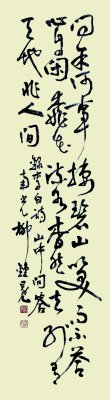 问余何事栖碧山笑而不答
心自闲桃花流水杳然去别有
天地非人间
李白诗山中问答